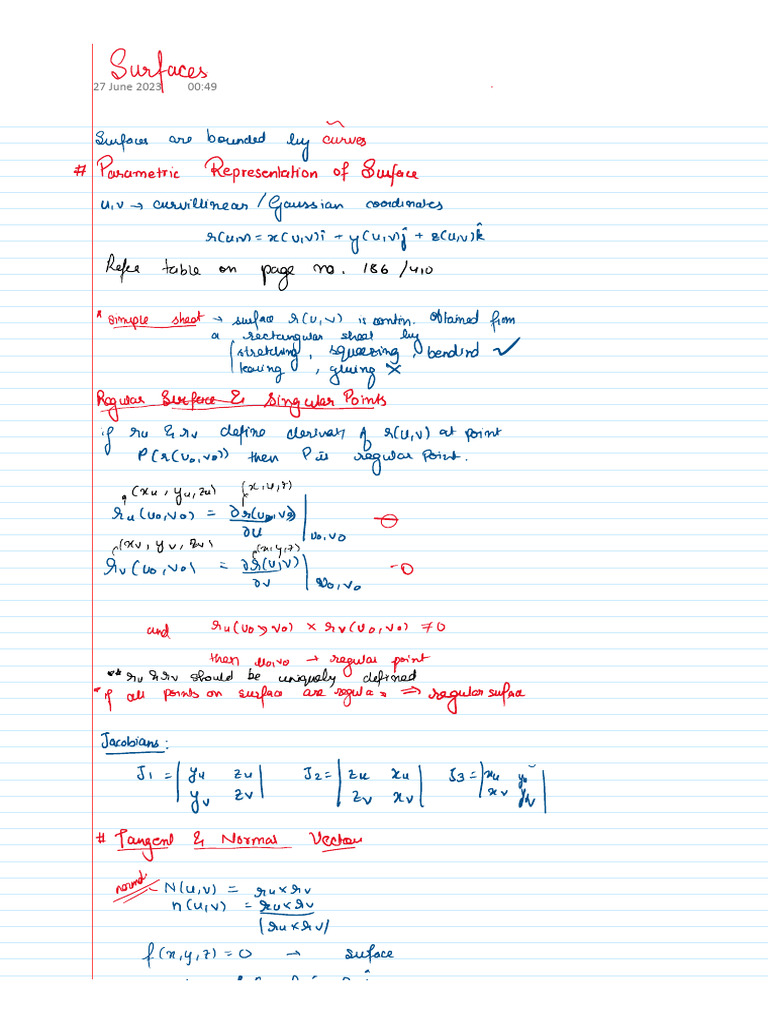 Surfaces
27 June 2023 00:49
Surfaces are bounded by curves
# Parametric Representation of Surface
u,v → curvillinear / Gaussian coordinates
r(u,v) = x(u,v)î + y(u,v)ĵ + z(u,v)k̂
Refer table on page no. 186 /410
* Simple sheet → surface r(u,v) is contin. Obtained from
a rectangular sheet by
stretching, squeezing, bending ✓
tearing, gluing ✗
Regular Surface & Singular Points
if ru & rv define derivati of r(u,v) at point
P(r(u0,v0)) then P is regular Point.
(xu, yu, zu) (x,y,z)
ru(u0,v0) = ∂r(u,v)/∂u | u0,v0
(xv, yv, zv) (x,y,z)
rv(u0,v0) = ∂r(u,v)/∂v | u0,v0
and ru(u0,v0) × rv(u0,v0) ≠ 0
then u0,v0 → regular point
** ru & rv should be uniquely defined
* if all points on surface are regular ⇒ regular surface
Jacobians:
J1 = |yu zu| J2 = |zu xu| J3 = |xu yu|
|yv zv| |zv xv| |xv yv|
# Tangent & Normal Vectors
normal N(u,v) = ru × rv
n(u,v) = ru × rv
|ru × rv|
f(x,y,z) = 0 → surface